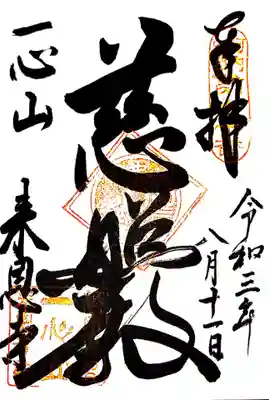 奉拝
令和三年
八月十一日
慈照殿
一心山
来恩寺